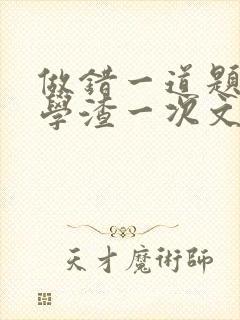 做錯一道題
學渣一次文
天才魔術師